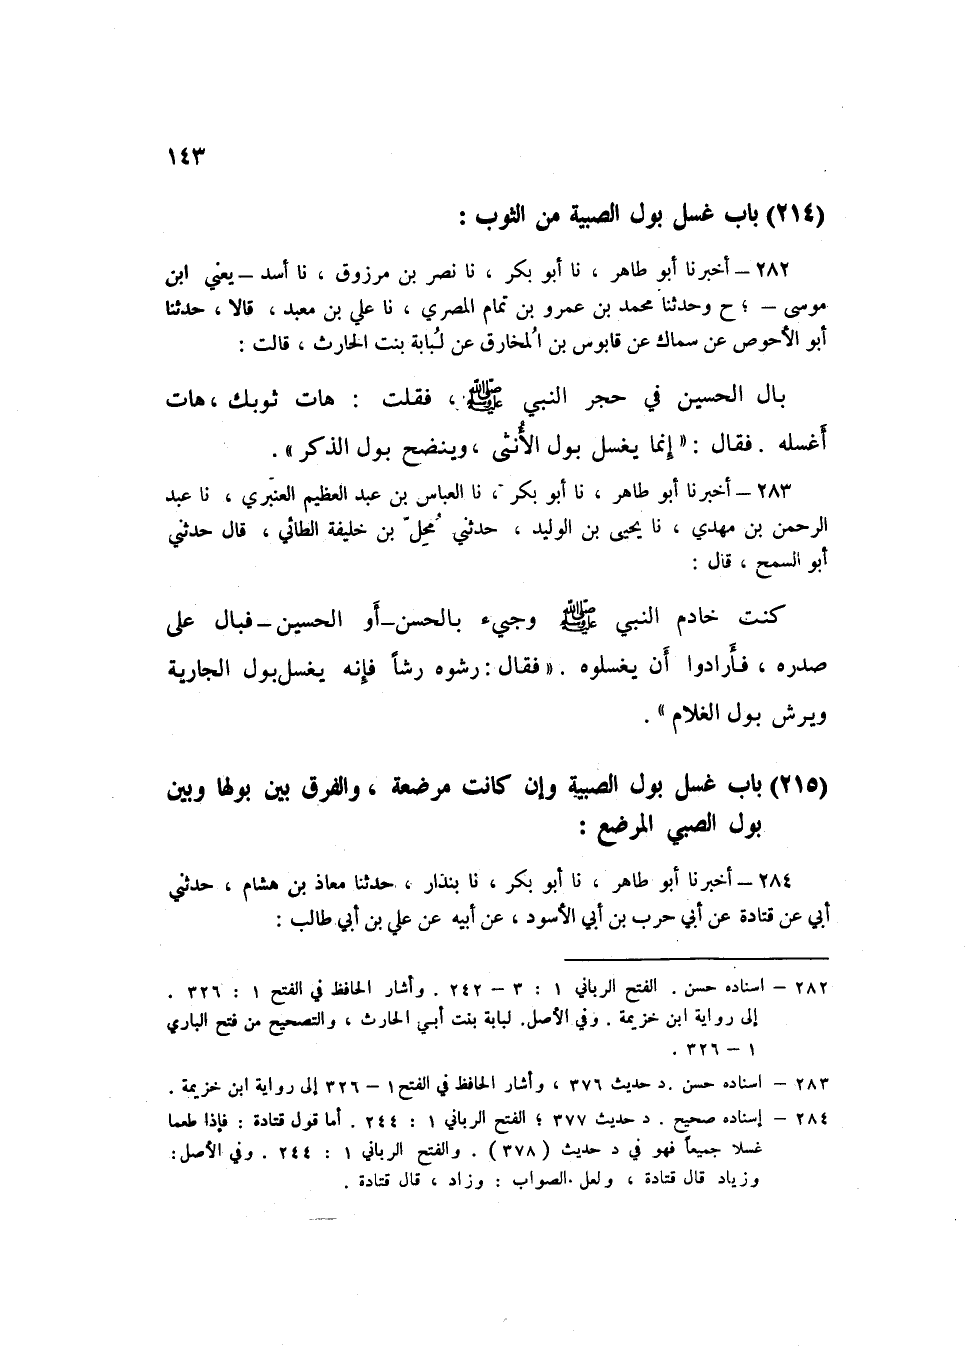 ١٤٣
(٢١٤) باب غسل بول الصبية من الثوب :
٢٨٢ – أخبرنا أبو طاهر ، نا أبو بكر ، نا نصر بن مرزوق ، نا أسد – يعني ابن
موسى – ؛ ح وحدثنا محمد بن عمرو بن تمام المصري ، نا علي بن معبد ، قالا ، حدثنا
أبو الأحوص عن سماك عن قابوس بن المُخارق عن لُبابة بنت الحارث ، قالت :
بال الحسين في حجر النبي ﷺ ، فقلت : هات ثوبك ، هات
أَغسله . فقال : « إنما يغسل بول الأُنثى ، وينضح بول الذكر » .
٢٨٣ – أخبرنا أبو طاهر ، نا أبو بكر ، نا العباس بن عبد العظيم العنبري ، نا عبد
الرحمن بن مهدي ، نا يحيى بن الوليد ، حدثني مُحِلّ بن خليفة الطائي ، قال حدثني
أبو السمح ، قال :
كنت خادم النبي ﷺ وجيء بالحسن – أَو الحسين – فبال على
صدره ، فأَرادوا أَن يغسلوه . « فقال : رشوه رشاً فإِنه يغسل بول الجارية
ويرش بول الغلام » .
(٢١٥) باب غسل بول الصبية وإن كانت مرضعة ، والفرق بين بولها وبين
بول الصبي المرضع :
٢٨٤ – أخبرنا أبو طاهر ، نا أبو بكر ، نا بندار ، حدثنا معاذ بن هشام ، حدثني
أبي عن قتادة عن أبي حرب بن أبي الأسود ، عن أبيه عن علي بن أبي طالب :
٢٨٢ – اسناده حسن . الفتح الرباني ١ : ٣ – ٢٤٢ . وأشار الحافظ في الفتح ١ : ٣٢٦ .
إلى رواية ابن خزيمة . وفي الأصل. لبابة بنت أبي الحارث ، والتصحيح من فتح الباري
١ – ٣٢٦ .
٢٨٣ – اسناده حسن . د حديث ٣٧٦ ، وأشار الحافظ في الفتح ١ – ٣٢٦ إلى رواية ابن خزيمة .
٢٨٤ – إسناده صحيح . د حديث ٣٧٧ ؛ الفتح الرباني ١ : ٢٤٤ . أما قول قتادة : فإذا طعما
غسلا جميعاً فهو في د حديث ( ٣٧٨ ) . والفتح الرباني ١ : ٢٤٤ . وفي الأصل :
وزياد قال قتادة ، ولعل الصواب : وزاد ، قال قتادة .